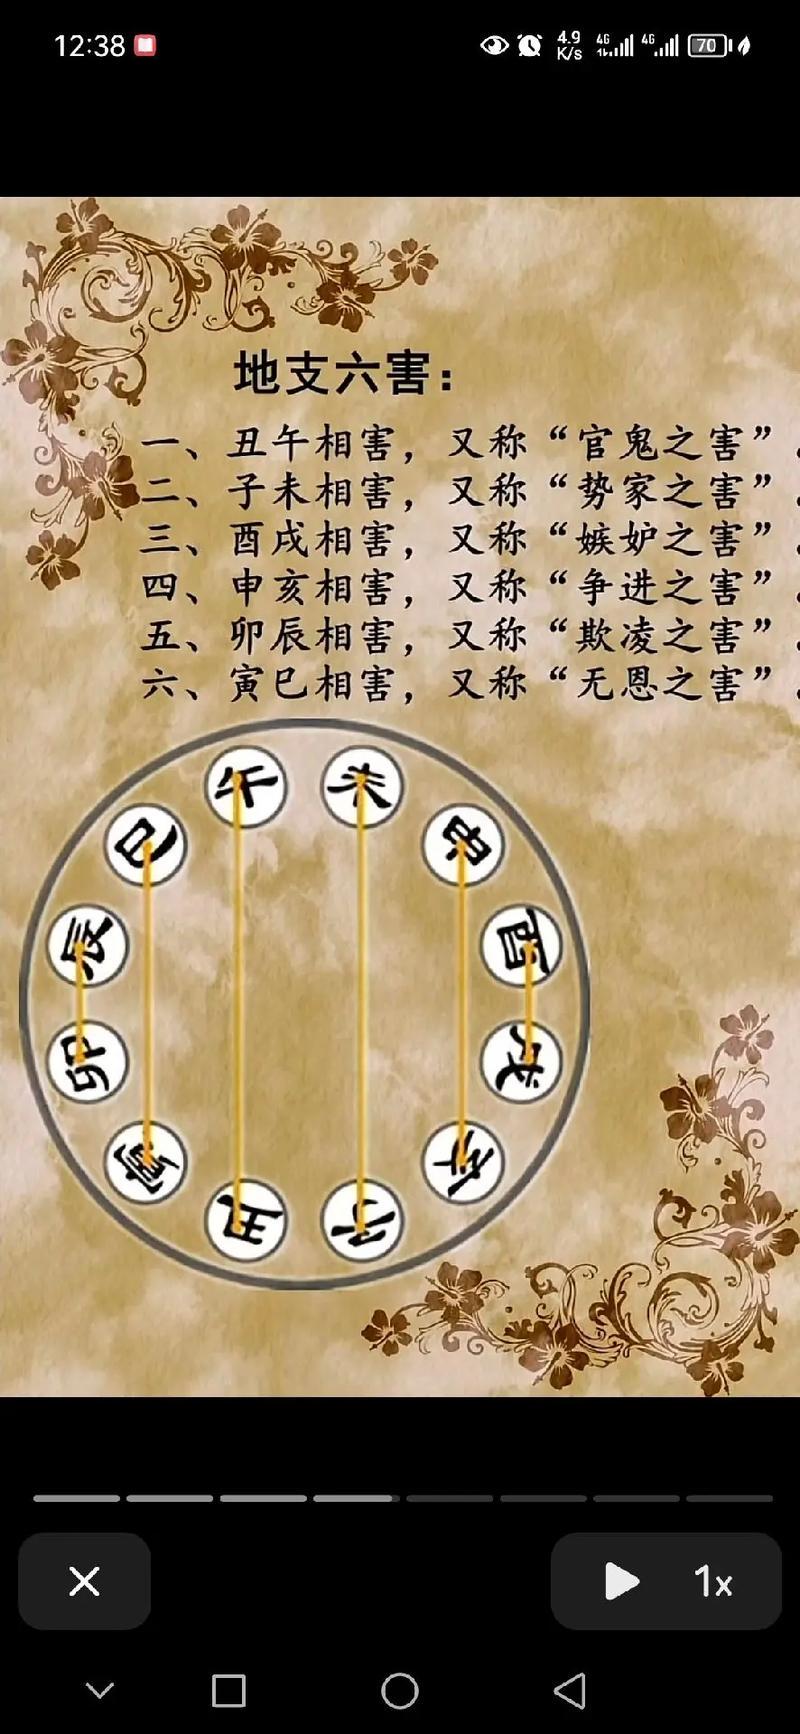 12:38
4.9 K/s 4G 4G 70
地支六害：
一、丑午相害，又称“官鬼之害”。
二、子未相害，又称“势家之害”。
三、酉戌相害，又称“嫉妒之害”。
四、申亥相害，又称“争进之害”。
五、卯辰相害，又称“欺凌之害”。
六、寅巳相害，又称“无恩之害”。
午 未
巳 申
辰 酉
卯 戌
寅 亥
丑 子
1x